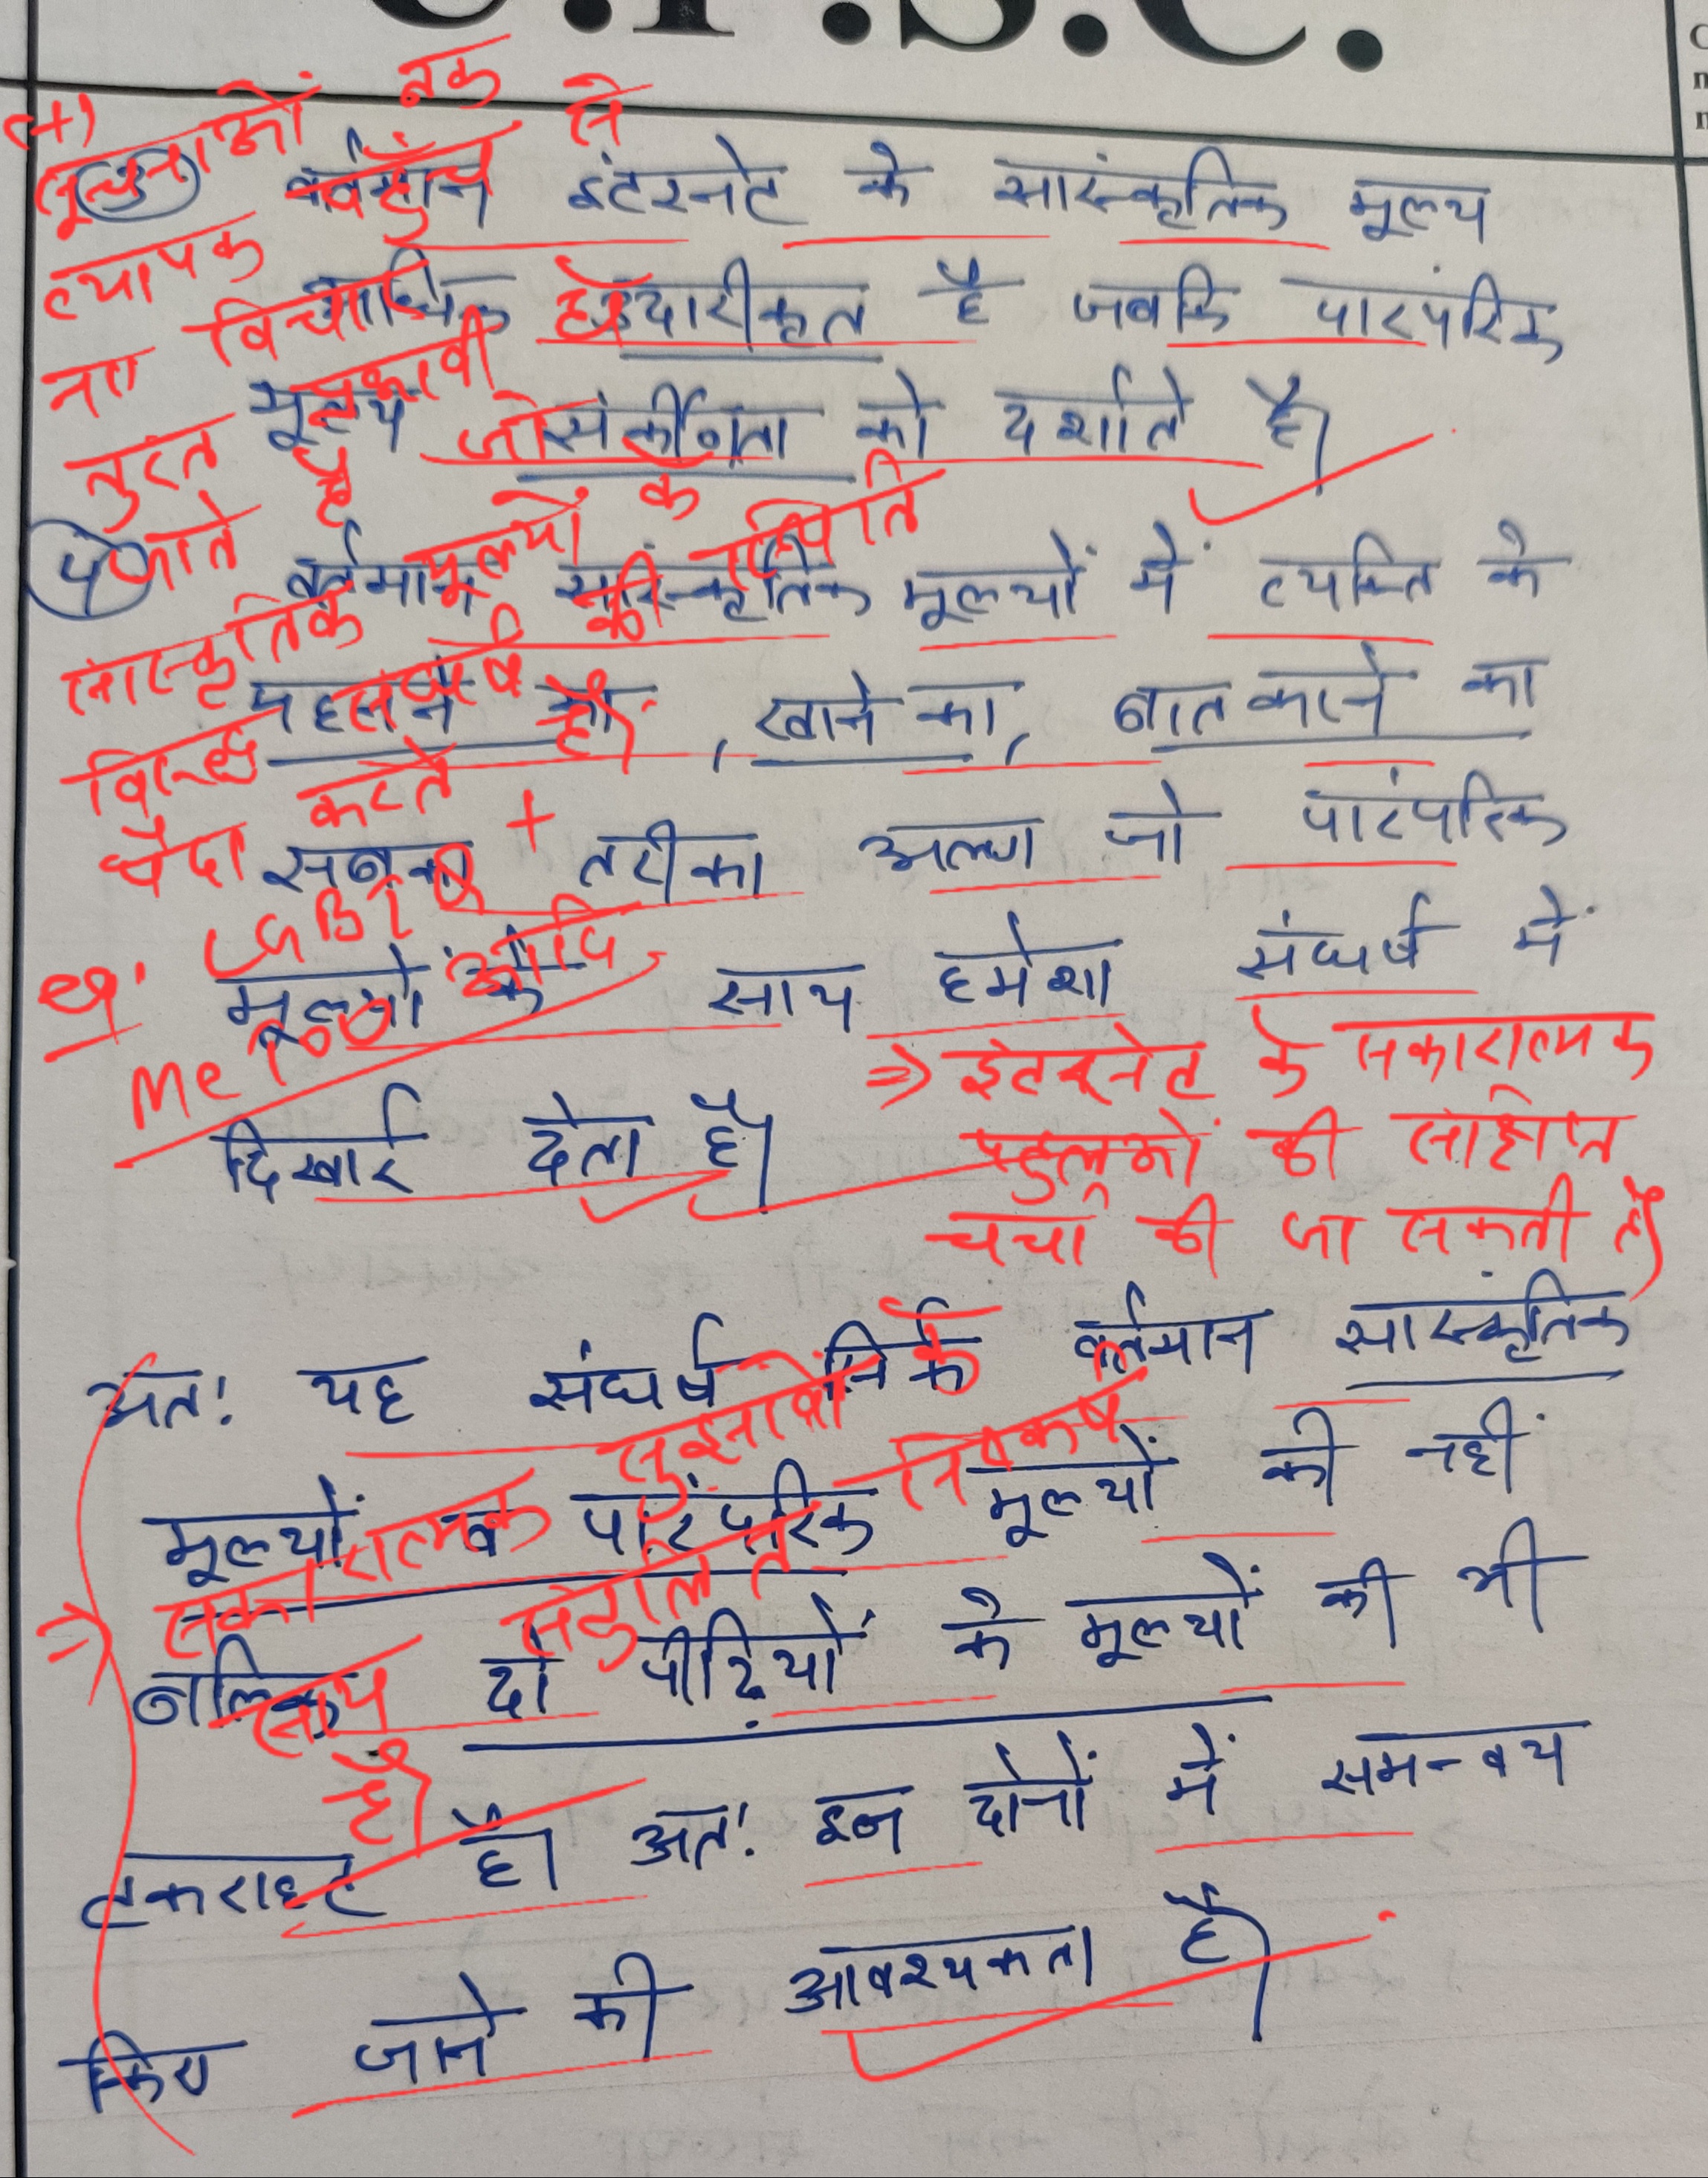 U.P.S.C.
(+)
सूचनाओं तक
व्यापक पहुँच से
नए विचारों
तुरंत प्रभावी हो
जाते हैं जो
सांस्कृतिक मूल्यों के
विरुद्ध संघर्ष की स्थिति
पैदा करते हैं।
eg. LGBTQ+
Me Too आदि
3 वर्तमान इंटरनेट के सांस्कृतिक मूल्य
आधिक उदारीकृत है जबकि पारंपरिक
मूल्य संकीर्णता को दर्शाते है।
4 वर्तमान सांस्कृतिक मूल्यों में व्यक्ति के
पहनने का, खाने का, बात करने का
सबका तरीका अलग जो पारंपरिक
मूल्यों के साथ हमेशा संघर्ष में
दिखाई देता है।
⇒ इंटरनेट के सकारात्मक
पहलूओं की संक्षिप्त
चर्चा की जा सकती है।
अत: यह संघर्ष सिर्फ वर्तमान सांस्कृतिक
मूल्यों व पारंपरिक मूल्यों की नहीं
बल्कि दो पीढ़ियों के मूल्यों की भी
टकराहट है। अत: इन दोनों में समन्वय
किए जाने की आवश्यकता है।
⇒ सकारात्मक सुझावों के
साथ संतुलित निष्कर्ष
है।